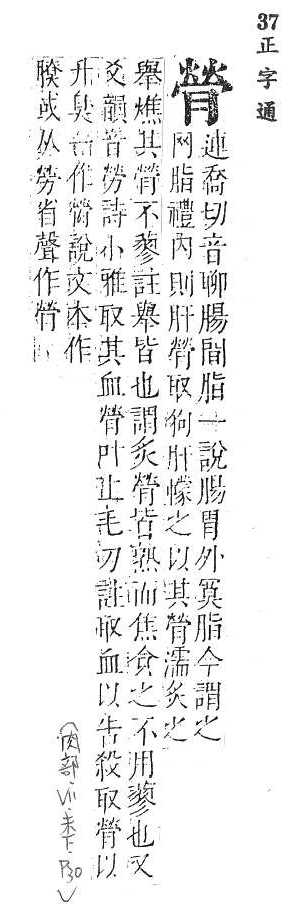 37正字通
膋
連喬切音聊腸間脂一說腸胃外冥脂今謂之
网脂禮內則肝膋取狗肝幪之以其膋濡炙之
舉燋其膋不蓼註舉皆也謂炙膋皆熟而焦食之不用蓼也又
爻韻音勞詩小雅取其血膋叶上毛刀註取血以告殺取膋以
升臭作說文本作
膫或从勞省聲作膋
(肉部.未下.P30)